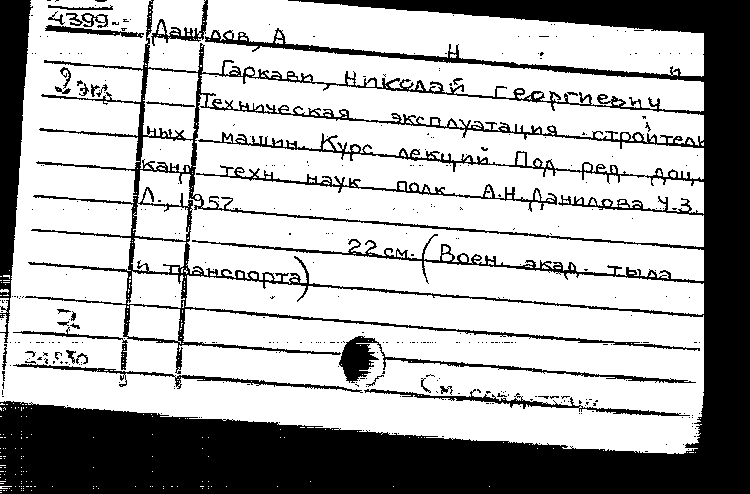 4399
Данилов, А Н
и
2 экз
Гаркави, Николай Георгиевич
Техническая эксплуатация строитель
ных машин. Курс лекций. Под ред. доц.
канд техн. наук полк. А.Н. Данилова Ч.3.
Л., 1957.
22 см. (Воен. акад. тыла
и транспорта)
24830
См. след.